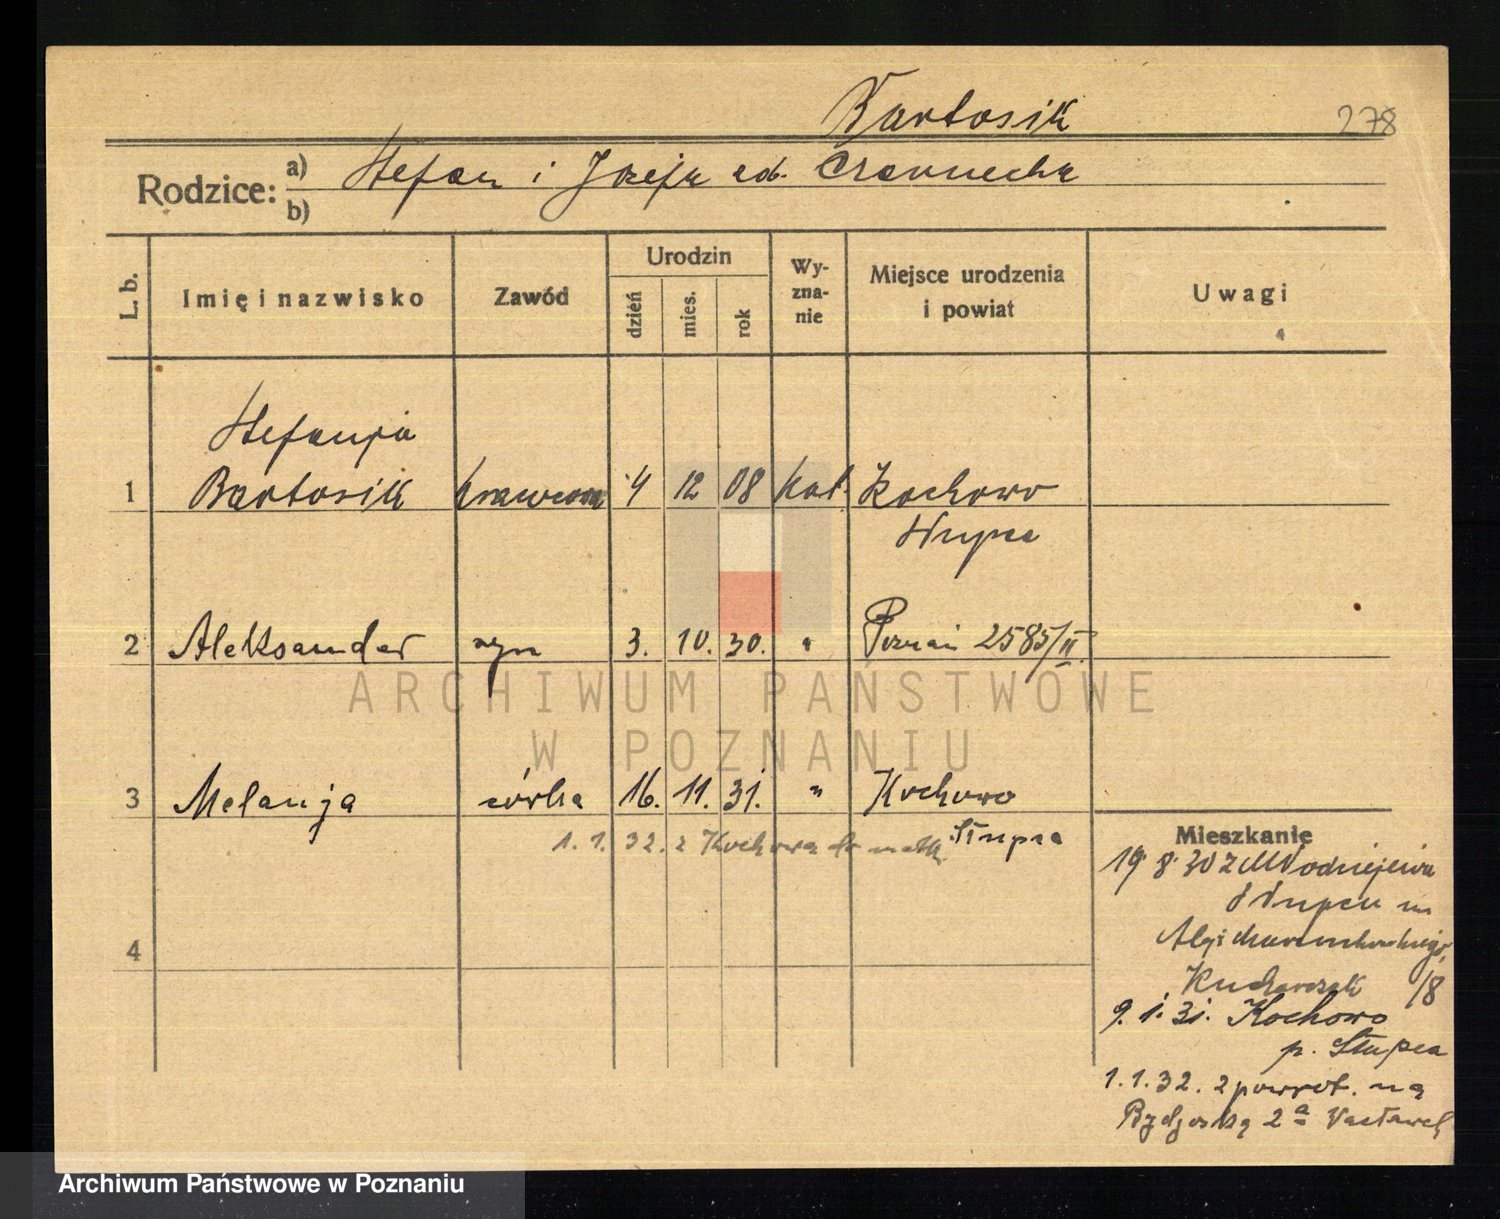 Bartosik
278
Rodzice: a) Stefan i Józefa zd. Czarnecka
b)
L. b.
Imię i nazwisko
Zawód
Urodzin
dzień
mies.
rok
Wy-
zna-
nie
Miejsce urodzenia
i powiat
Uwagi
Stefanja
1 Bartosik krawcowa 4 12 08 kat. Kochowo
Słupca
2 Aleksander syn 3. 10. 30. " Poznań 2585/II
ARCHIWUM PAŃSTWOWE
W POZNANIU
3 Melanja córka 16. 11. 31. " Kochowo
Słupca
1. 1. 32. z Kochowa do matk.
4
Mieszkanie
19 8 30 z
Słupca na
Kucharczak /8
9. 1. 31. Kochowo
p. Słupca
1. 1. 32. z powrot. na
Bydgoską 2a
Archiwum Państwowe w Poznaniu